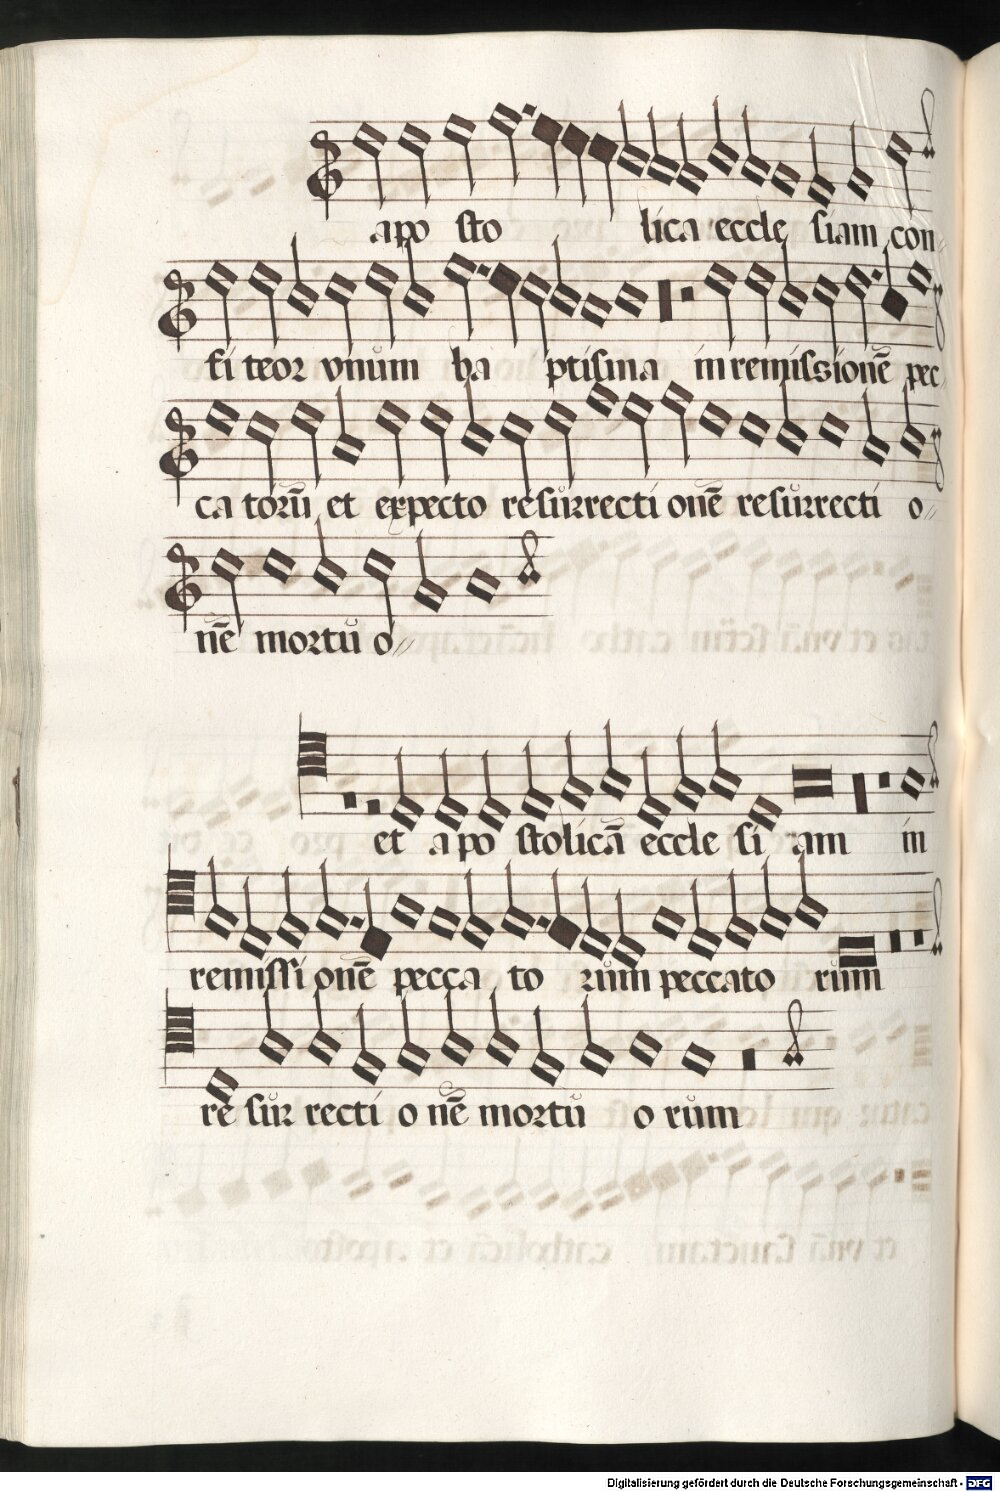 apo sto lica eccle siam con
fi teor vnum ba ptisma in remissionē pec
ca torū et expecto resurrecti onē resurrecti o
nē mortu o
et apo stolicā eccle si am in
remissi onē pecca to rum peccato rum
re sur recti o nē mortu o rum
Digitalisierung gefördert durch die Deutsche Forschungsgemeinschaft - DFG